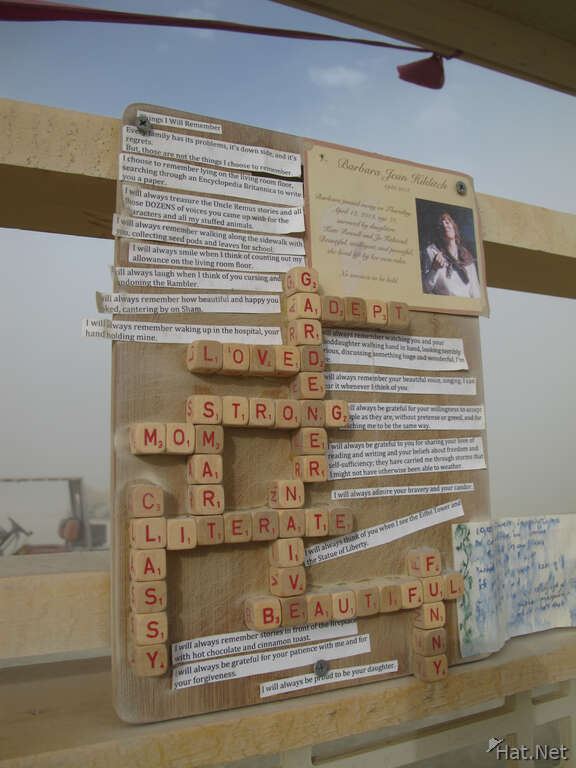 Things I Will Remember
Every family has its problems, it's down side, and it's
regrets.
But, those are not the things I choose to remember.
I choose to remember lying on the living room floor,
searching through an Encyclopedia Britannica to write
you a paper.
I will always treasure the Uncle Remus stories and all
those DOZENS of voices you came up with for the
characters and all my stuffed animals.
I will always remember walking along the sidewalk with
you, collecting seed pods and leaves for school.
I will always smile when I think of counting out my
allowance on the living room floor.
I will always laugh when I think of you cursing and
abandoning the Rambler.
will always remember how beautiful and happy you
looked, cantering by on Sham.
I will always remember waking up in the hospital, your
hand holding mine.
Barbara Jean Kilditch
Barbara passed away on Thursday,
April 12, 2012, age 75,
survived by daughters
Beautiful, intelligent, and graceful,
she lived life by her own rules.
No services to be held.
GARDENER
ADEPT
LOVED
STRONG
MOM
SMART
CLASSY
LITERATE
NATIVE
BEAUTIFUL
FUNNY
will always remember watching you and your
granddaughter walking hand in hand, looking terribly
serious, discussing something huge and wonderful, I'm
sure.
will always remember your beautiful voice, singing. I can
hear it whenever I think of you.
will always be grateful for your willingness to accept
people as they are, without pretense or greed, and for
teaching me to be the same way.
I will always be grateful to you for sharing your love of
reading and writing and your beliefs about freedom and
self-sufficiency; they have carried me through storms that
I might not have otherwise been able to weather.
I will always admire your bravery and your candor.
I will always think of you when I see the Eiffel Tower and
the Statue of Liberty.
I will always remember stories in front of the fireplace
with hot chocolate and cinnamon toast.
I will always be grateful for your patience with me and for
your forgiveness.
I will always be proud to be your daughter.
Hat.Net